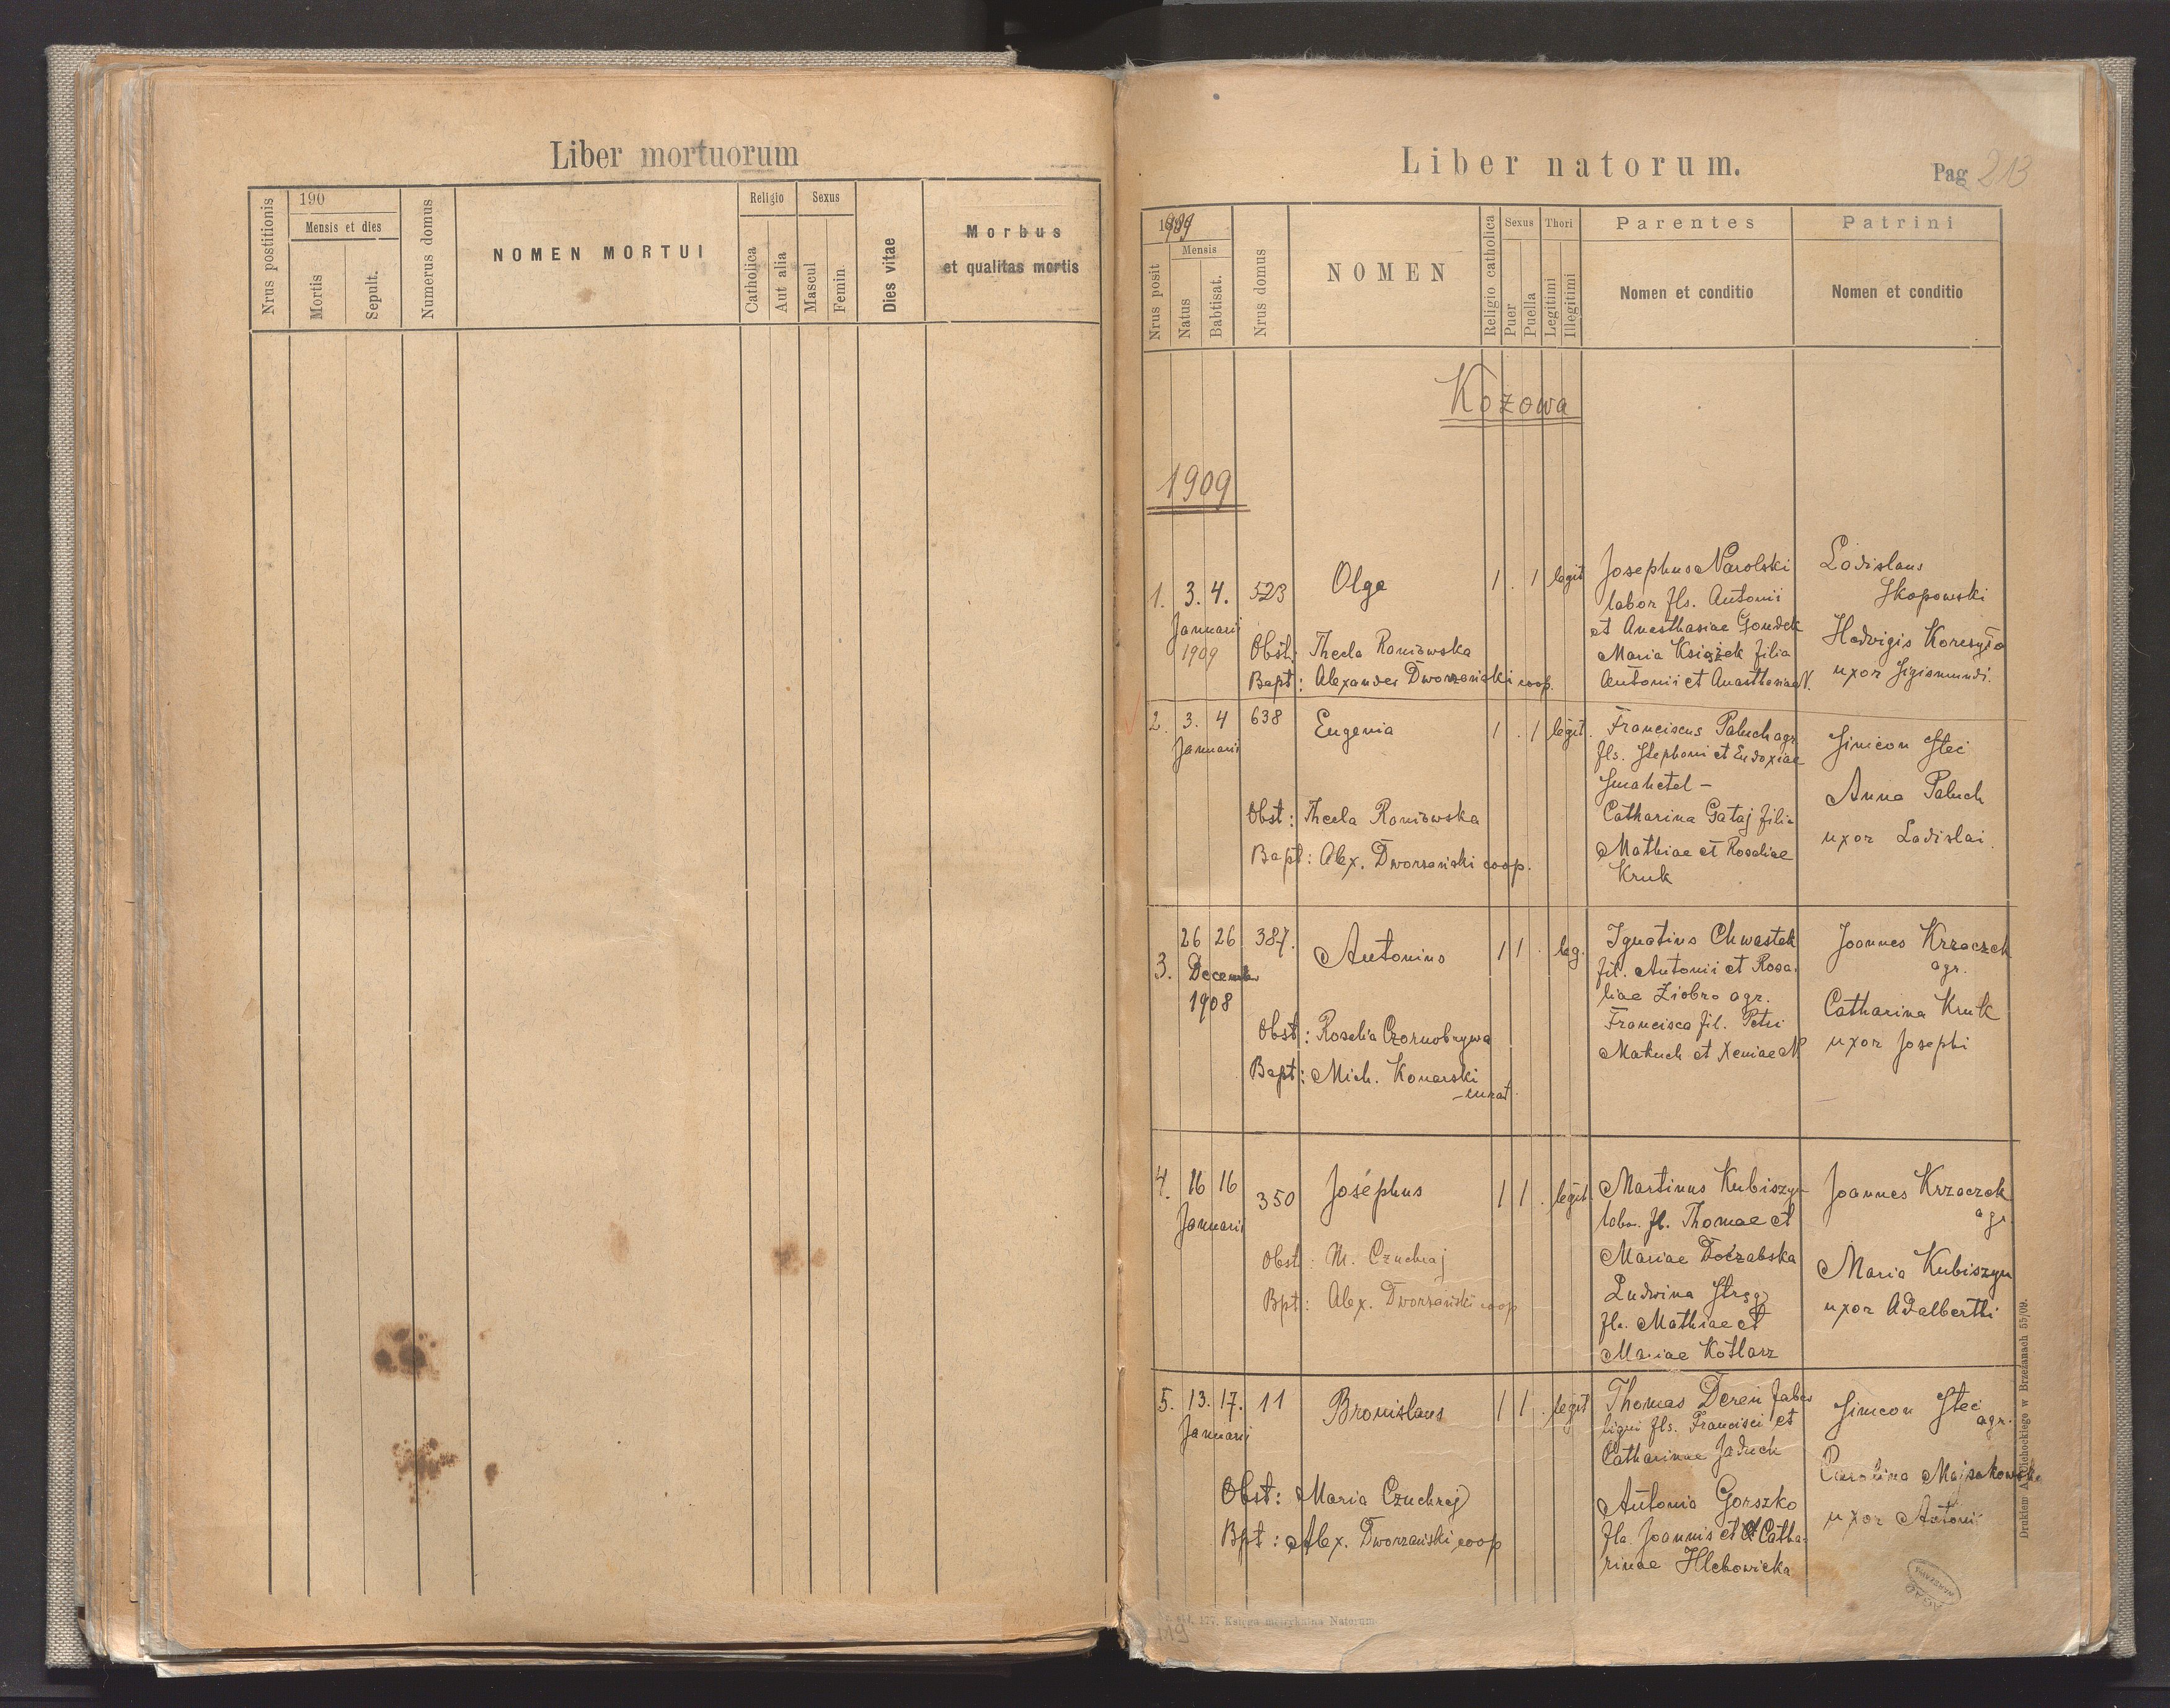 Liber mortuorum
Nrus postitionis
190
Mensis et dies
Mortis
Sepult.
Numerus domus
NOMEN MORTUI
Religio
Catholica
Aut alia
Sexus
Mascul
Femin
Dies vitae
Morbus
et qualitas mortis
Liber natorum.
Pag 213
1909
Nrus posit
Mensis
Natus
Babtisat.
Nrus domus
NOMEN
Religio catholica
Sexus
Puer
Puella
Thori
Legitimi
Illegitimi
Parentes
Nomen et conditio
Patrini
Nomen et conditio
Kozowa
1909
1. 3. 4. 523 Olga 1 . 1 legit
Januarii
1909
Obst: Thecla Raniowska
Bapt: Alexander Dworzański coop.
Josephus Narolski
labor fls. Antonii
et Anasthasiae Gondek
Maria Książek filia
Antonii et Anasthasiae N.
Ladislaus
Skopowski
Hedvigis
uxor Sigismundi.
2. 3. 4 638 Eugenia 1 . 1 legit.
Januarii
Obst: Thecla Raniowska
Bapt: Alex. Dworzański coop.
Franciscus Paluch agr.
fls. Stephani et Eudoxiae
Catharina Gataj filia
Mathiae et Rosaliae
Kruk
Simeon Stec
Anna Paluch
uxor Ladislai.
3. 26 26 387. Antonius 1 1 . leg.
December
1908
Obst: Rosalia Czornobrywa
Bapt: Mich. Konarski
curat.
Ignatius Chwastek
fil. Antonii et Rosa-
liae Ziobro agr.
Francisca fil. Petri
Makuch et Xeniae N.
Joannes Krzaczek
agr.
Catharina Kruk
uxor Josephi
4. 16 16 350 Josephus 1 1 . legit.
Januarii
Obst: M. Czuchraj
Bpt: Alex. Dworzański coop
Martinus Kubiszyn
labor. fl. Thomae et
Mariae
Ludwina
fla. Mathiae et
Mariae Kotlarz
Joannes Krzaczek
agr.
Maria Kubiszyn
uxor Adalberthi
5. 13. 17. 11 Bronislaus 1 1 . legit
Januarii
Obst: Maria Czuchraj
Bpt: Alex. Dworzański coop
Thomas Dereń faber
ligni fls. Francisci et
Catharinae Jaduch
Antonia Gorszko
fla. Joannis et Catha-
rinae Hlebowicka
Simeon Stec
agr.
Carolina Majsakowska
uxor Antoni
Drukiem A. Olchockiego w Brzeżanach 55/09.
177. Księga metrykalna Natorum